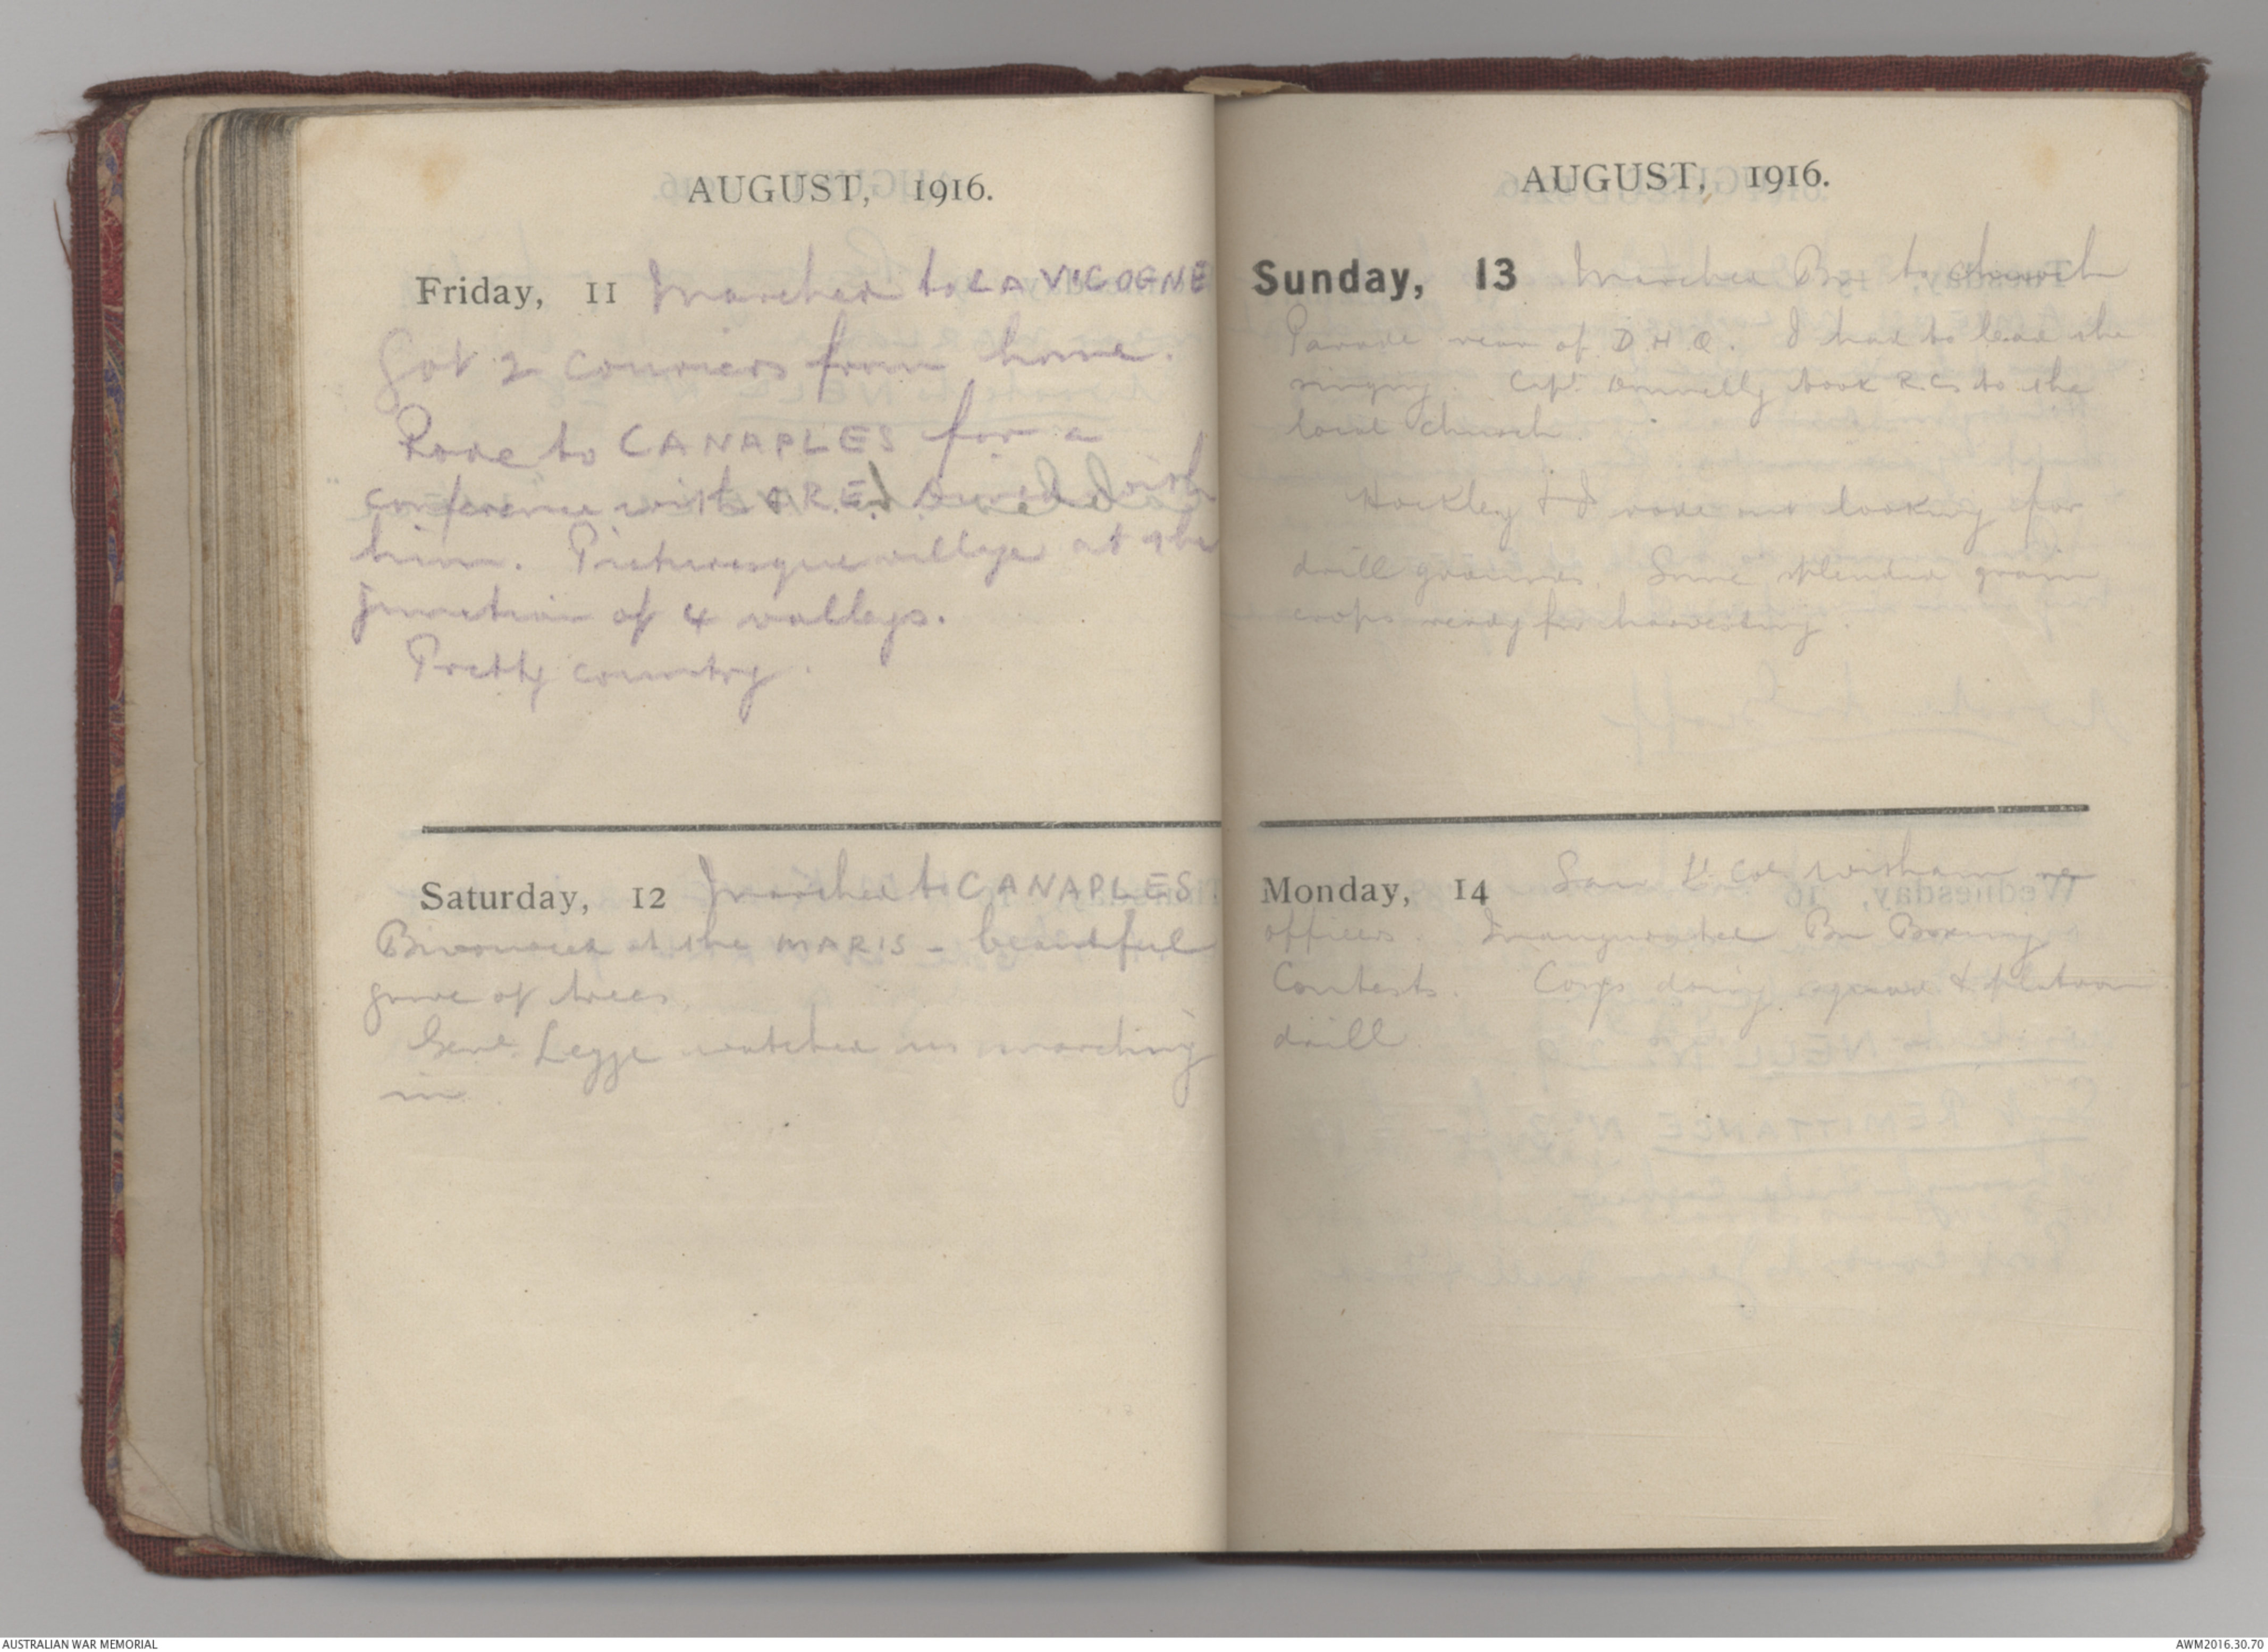 AUGUST, 1916.
Friday, 11 Marched to LA VICOGNE
Got 2 couriers from home.
Rode to CANAPLES for a
conference with CRE & dined with
him. Picturesque village at the
junction of 4 valleys.
Pretty country.
Saturday, 12 Marched to CANAPLES.
Bivouaced at the MARIS - beautiful
grove of trees.
Genl. Legge watched us marching
in.
AUGUST, 1916.
Sunday, 13 Marched Bn to church
Parade near of D.H.Q. I had to lead the
singing. Capt. Donnelly took R.Cs to the
local church.
Hockley & I rode out looking for
drill grounds. Some splendid grain
crops ready for harvesting.
Monday, 14 Saw Lt Col
officers. Inaugurated Bn Boxing
Contests. Coys doing squad & platoon
drill
AUSTRALIAN WAR MEMORIAL
AWM2016.30.70